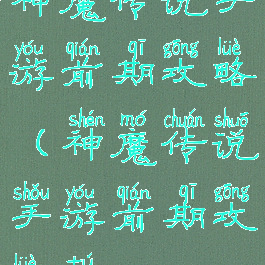 神魔传说手
yóu qián qī gōng lüè
游前期攻略
shén mó chuán shuō
(神魔传说
shǒu yóu qián qī gōng
手游前期攻
lüè tú